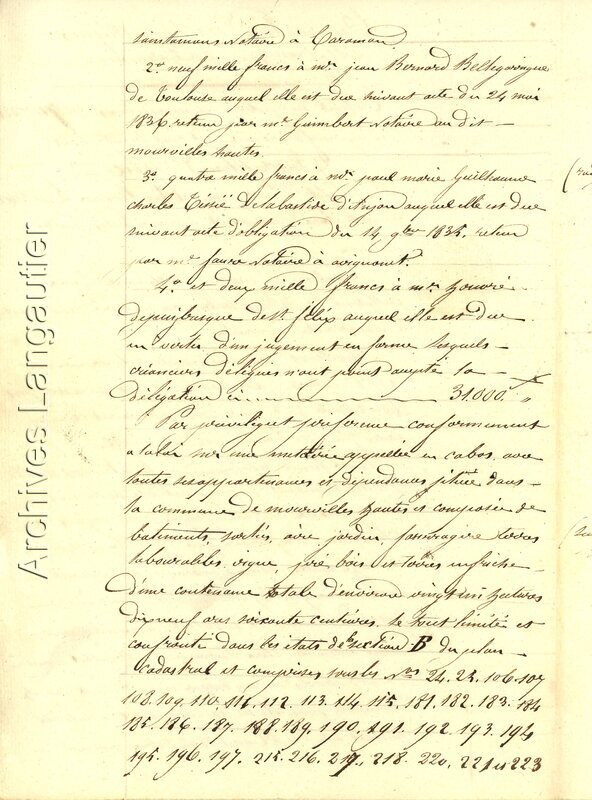 notaire à Caraman
2º neuf mille francs à mr jean Bernard Bellegarrigue
de Toulouse auquel elle est due suivant acte du 24 mai
1836 retenu par me Guimbert Notaire au dit
mourvilles hautes.
3º quatre mille francs à mr paul marie Guilhaume
charles Tissié de labastide d'Anjou auquel elle est due
suivant acte d'obligation du 14 9bre 1835. retenu
par me faure Notaire à avignonet.
4º et deux mille francs à mr honoré
depuibusque de st félix auquel elle est due
en vertu d'un jugement en forme lesquels
créanciers délégués n'ont point accepté la
délégation ci 31.000. "
Par privilège et préférence conformément
a la loi sur une métairie appellée en cabos, avec
toutes ses appartenances et dépendances située dans
la commune de mourvilles hautes et composée de
batiments, sorties, aire jardin, paturages terres
labourables, vigne, pré bois et terres en friche
d'une contenance totale d'environ vingt un hectares
dix neuf ares soixante centiares, le tout limité et
confronté dans les états de section B du plan
cadastral et comprises sous les Nos 24. 25. 106. 107
108. 109. 110. 111. 112. 113. 114. 115. 181. 182. 183. 184
185. 186. 187. 188. 189. 190. 191. 192. 193. 194
195. 196. 197. 215. 216. 217. 218. 220. 221 et 223
Archives Langautier